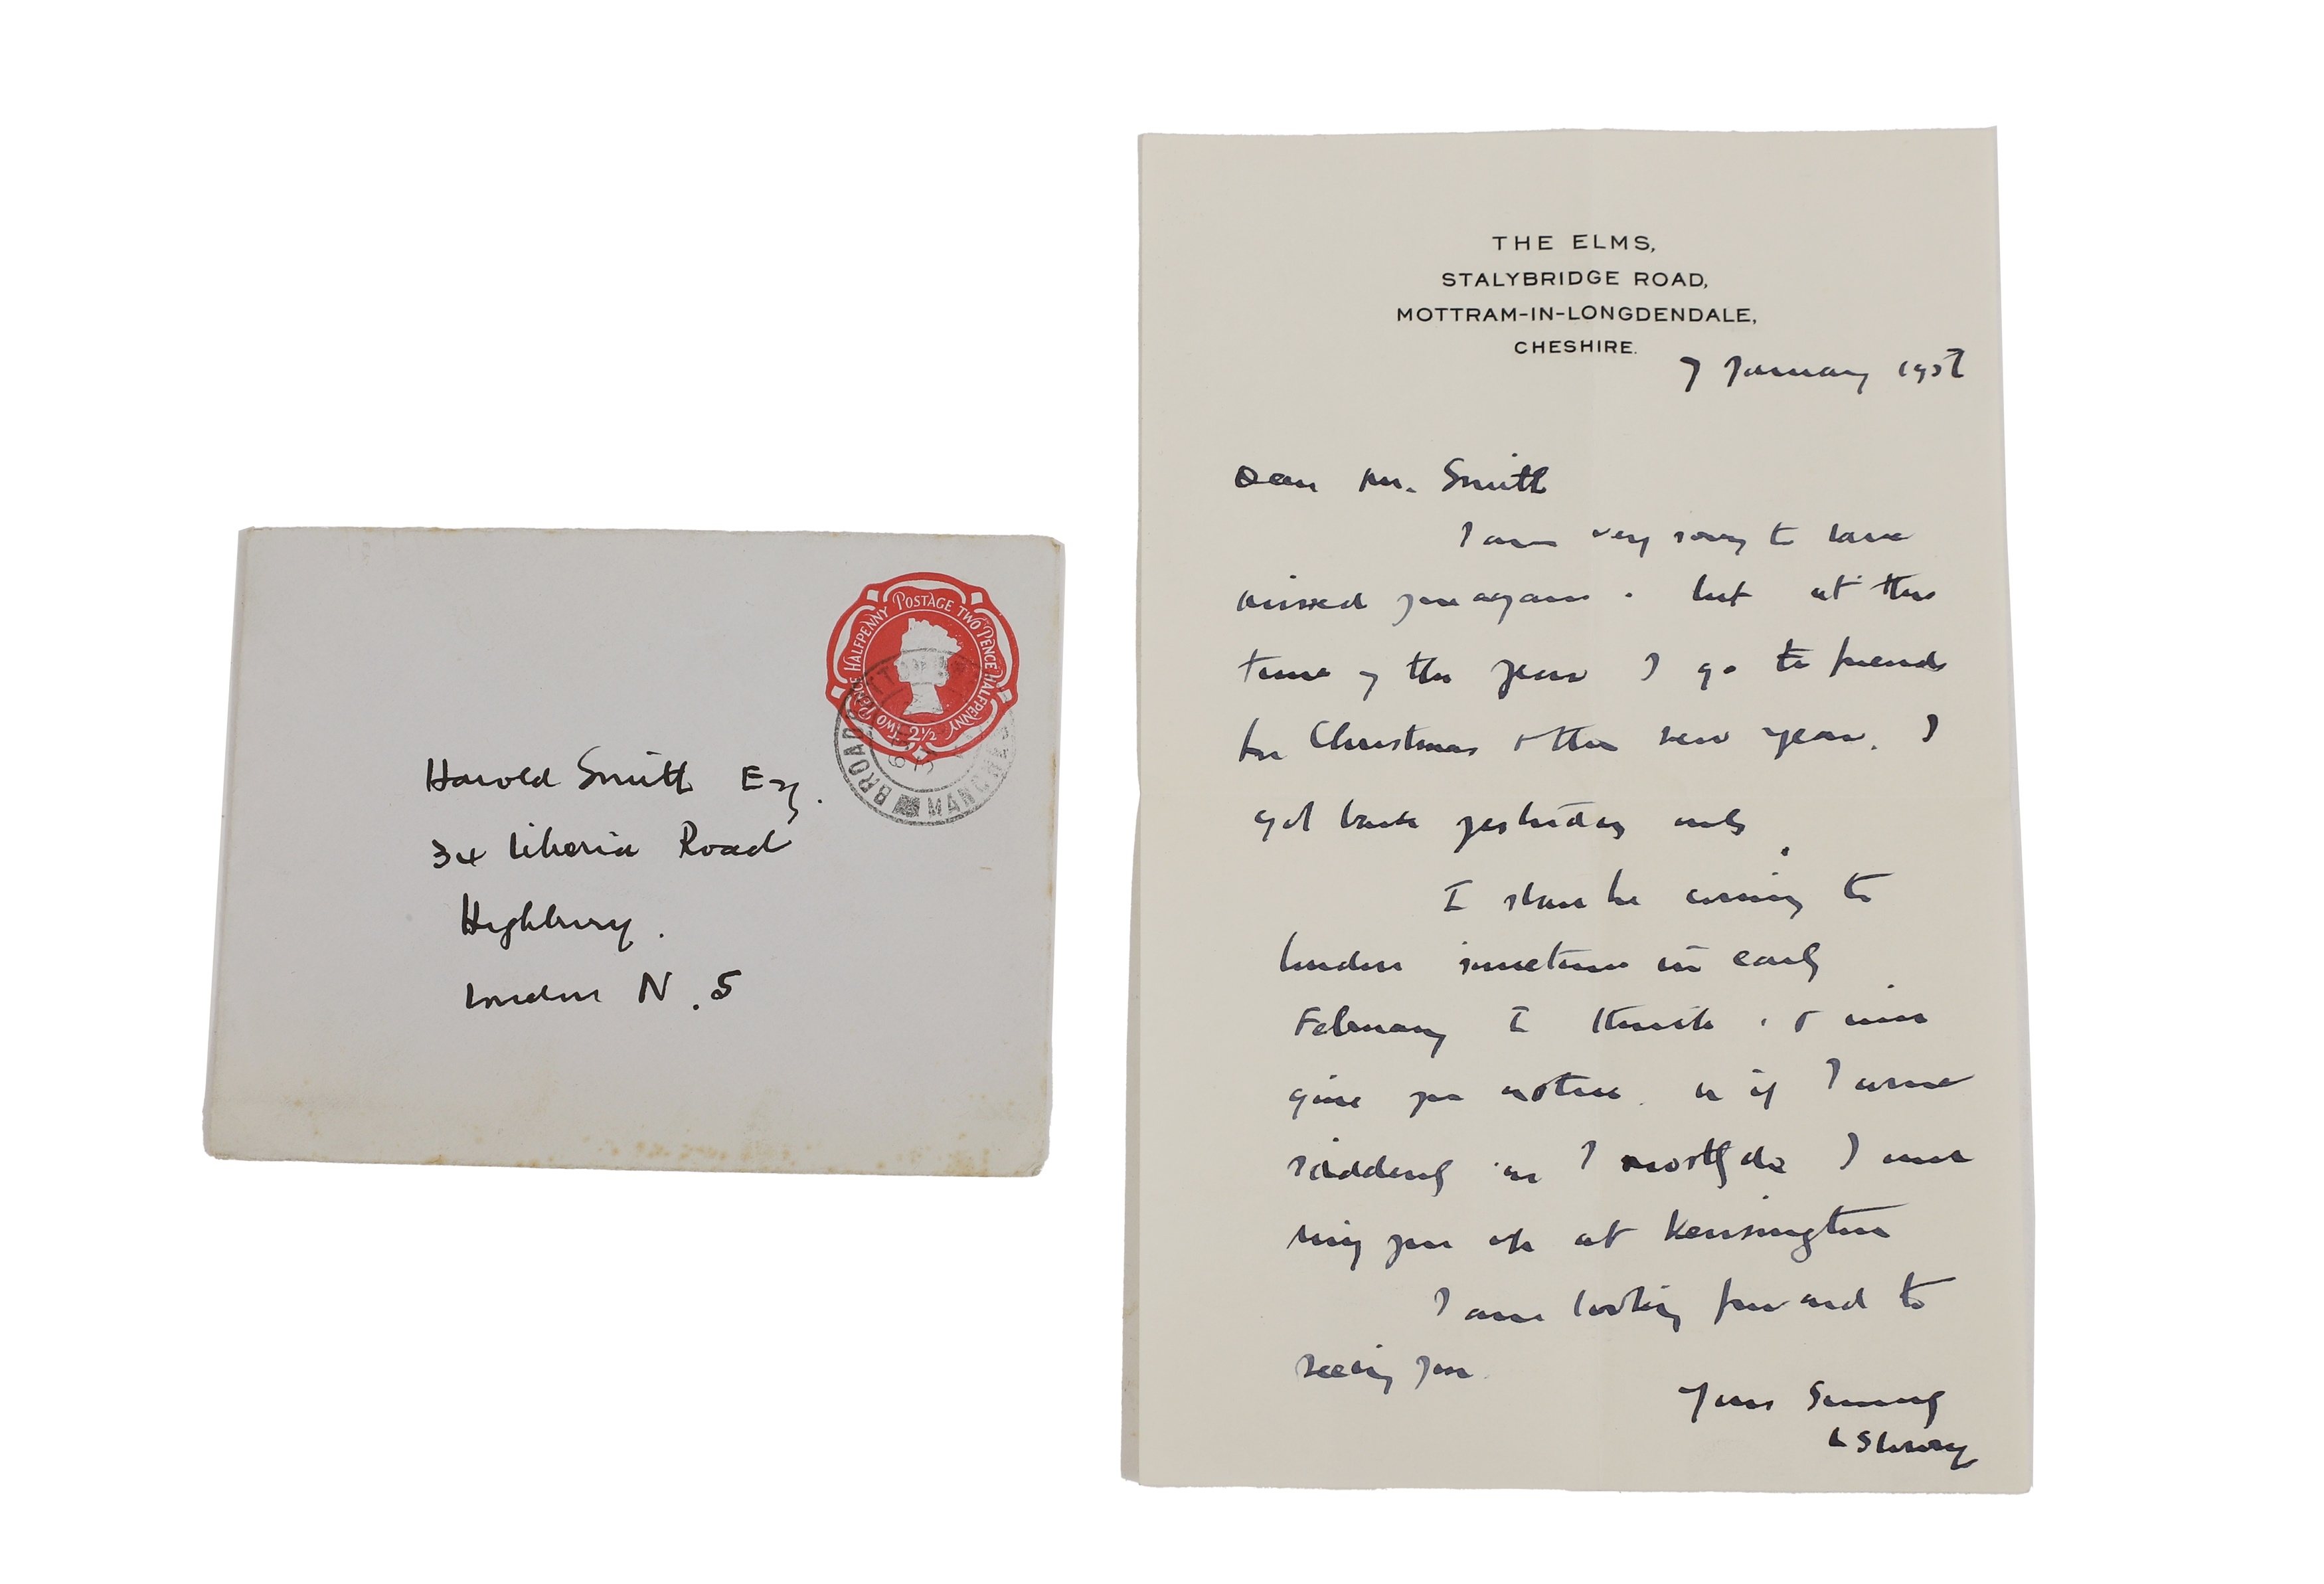 POSTAGE TWO PENCE HALFPENNY
TWO PENCE HALFPENNY
2½
BROAD
MANCHE
Harold Smith Esq.
34 Liberia Road
Highbury.
London N.5
THE ELMS,
STALYBRIDGE ROAD,
MOTTRAM-IN-LONGDENDALE,
CHESHIRE.
7 January 1957
Dear Mr. Smith
I am very sorry to have
missed you again. but at this
time of the year I go to friends
for Christmas & the new year. I
got back yesterday only.
I shall be coming to
London sometime in early
February I think. & will
give you notice. or if I come
suddenly as I mostly do I will
ring you up at Kensington
I am looking forward to
seeing you.
Yours Sincerely
L S Lowry